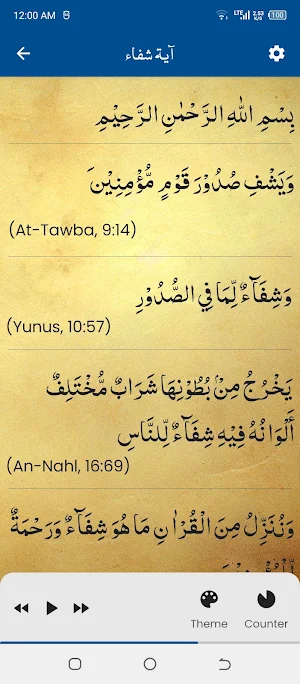 12:00 AM
LTE 2.53 K/s 100
آية شفاء
بِسْمِ اللهِ الرَّحْمٰنِ الرَّحِيْمِ
وَيَشْفِ صُدُوْرَ قَوْمٍ مُّؤْمِنِيْنَ
(At-Tawba, 9:14)
وَشِفَآءٌ لِّمَا فِي الصُّدُوْرِ
(Yunus, 10:57)
يَخْرُجُ مِنْۢ بُطُوْنِهَا شَرَابٌ مُّخْتَلِفٌ
أَلْوَانُهُ فِيْهِ شِفَآءٌ لِّلنَّاسِ
(An-Nahl, 16:69)
وَنُنَزِّلُ مِنَ الْقُرْاٰنِ مَا هُوَ شِفَآءٌ وَرَحْمَةٌ
Theme
Counter